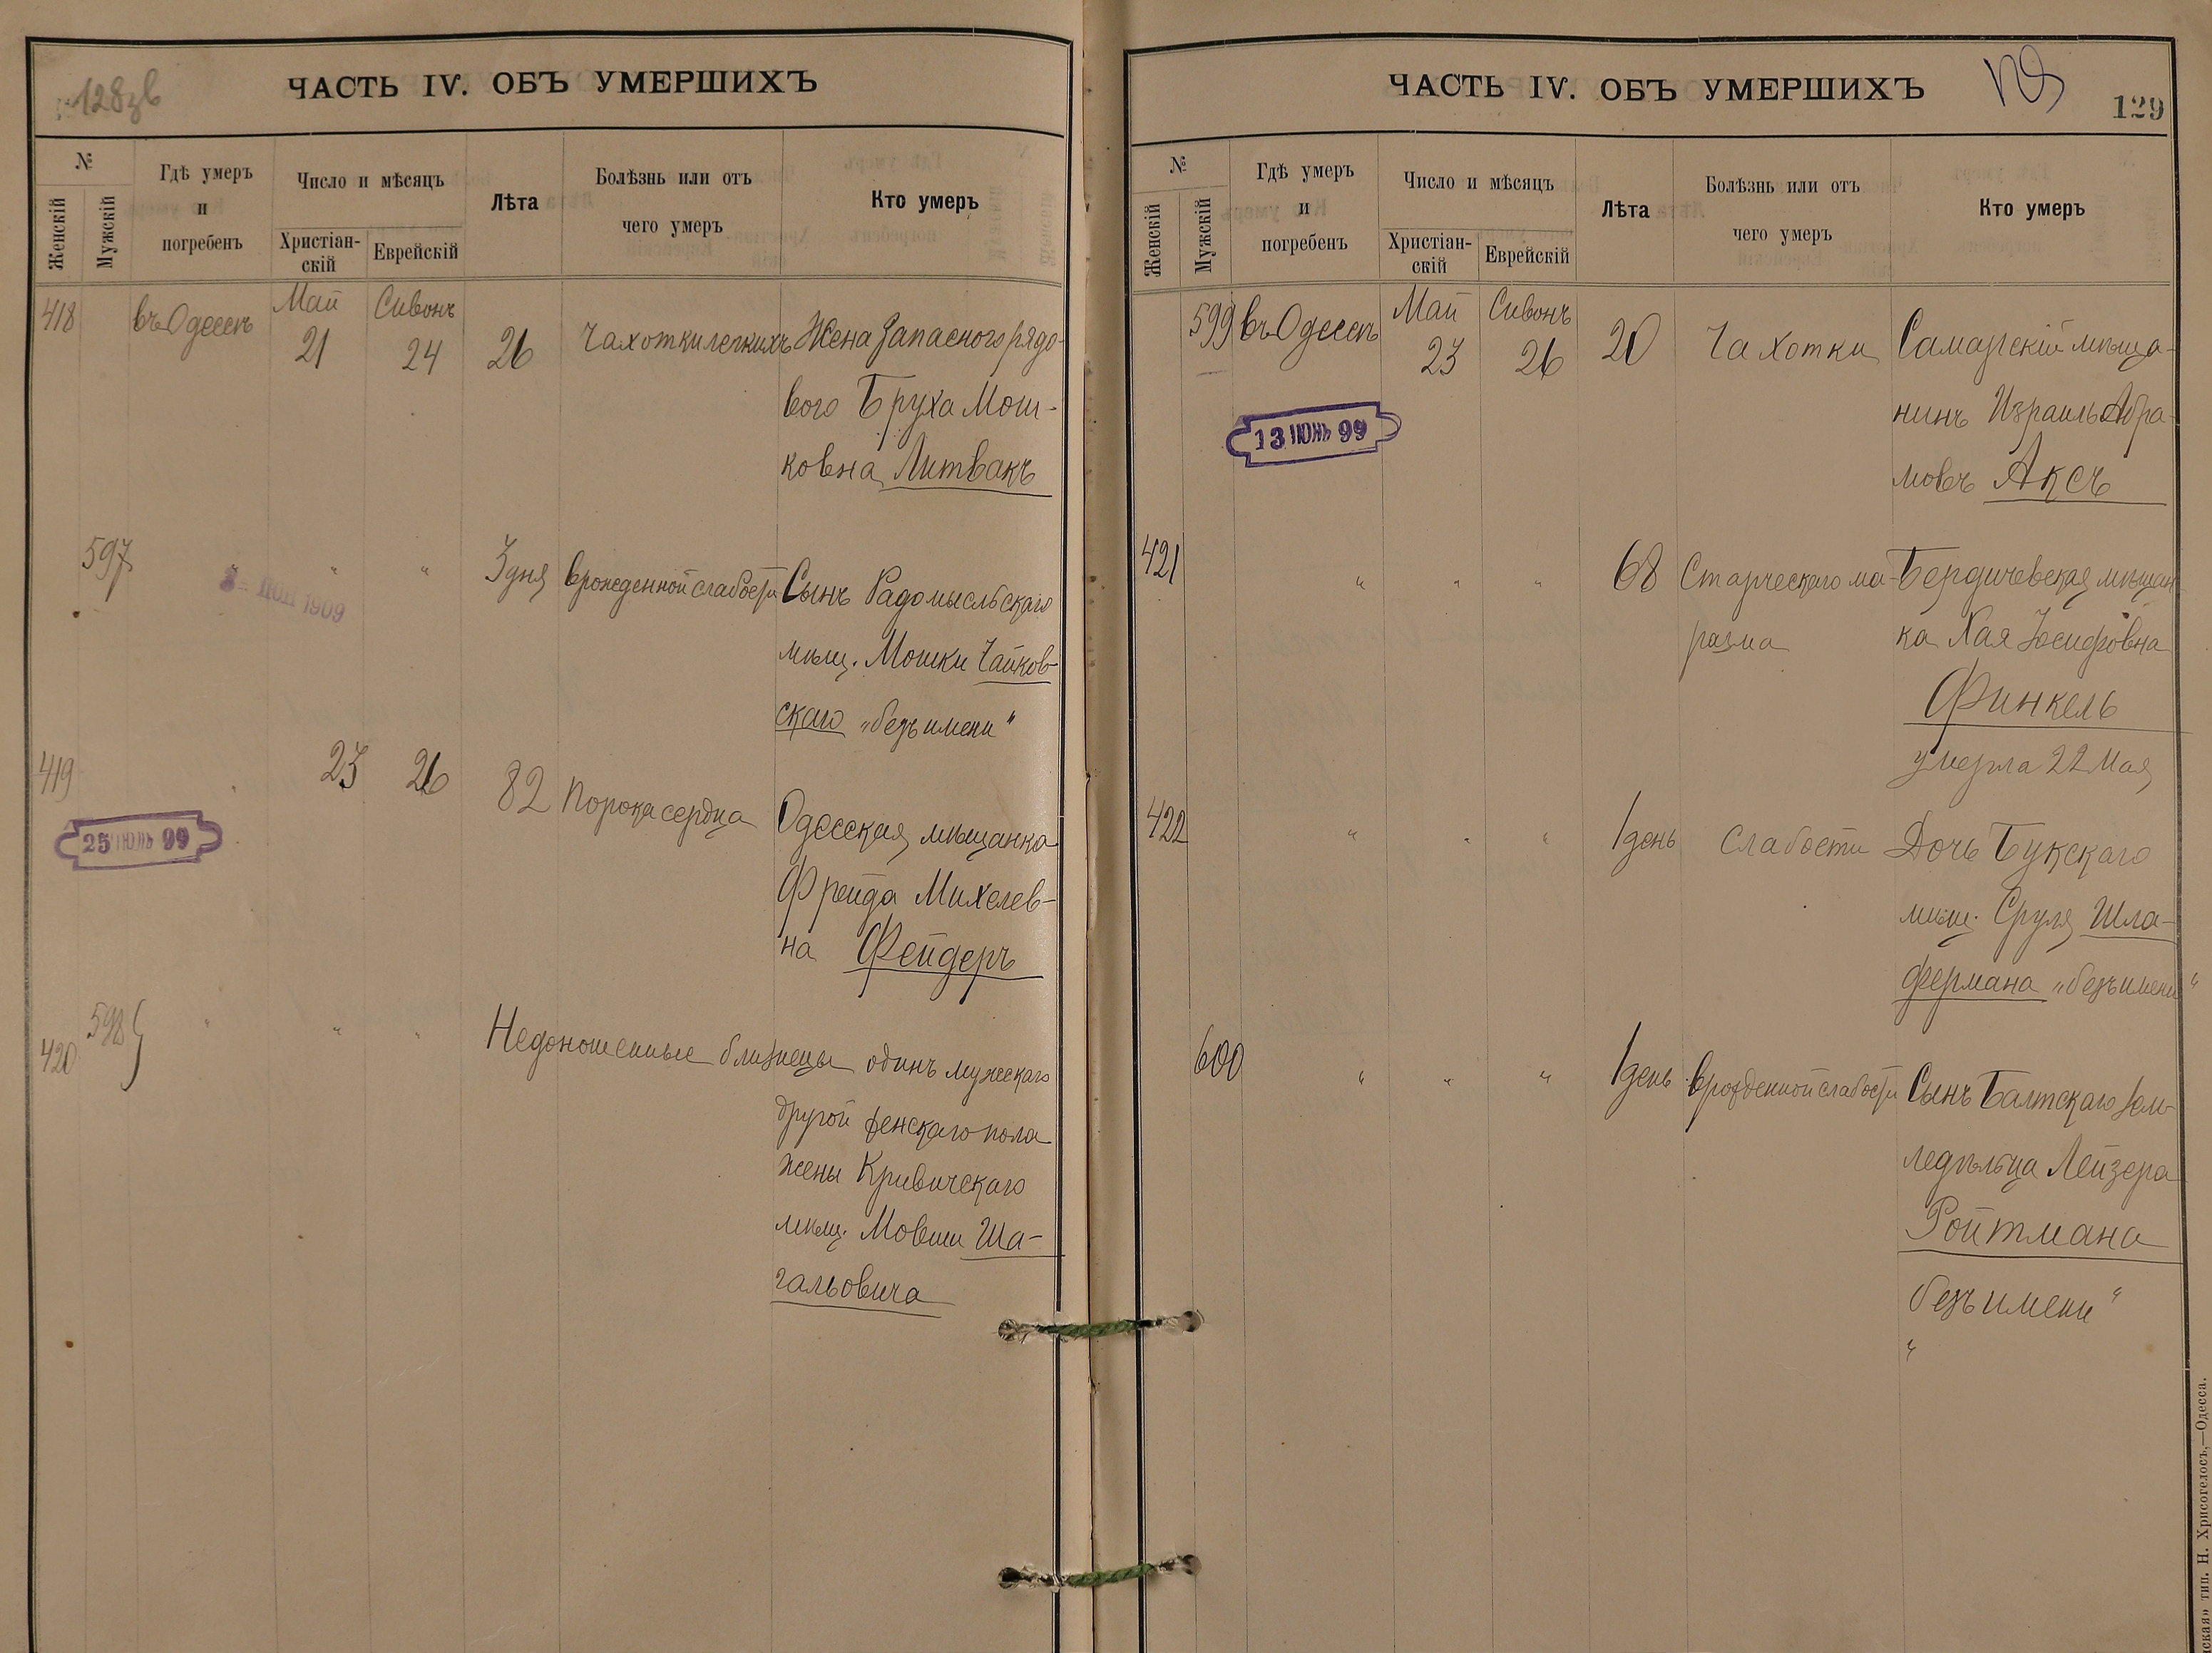 128 зв
ЧАСТЬ IV. ОБЪ УМЕРШИХЪ
№
Женскій
Мужскій
Гдѣ умеръ
и
погребенъ
Число и мѣсяцъ
Христіан-
скій
Еврейскій
Лѣта
Болѣзнь или отъ
чего умеръ
Кто умеръ
418
въ Одессѣ
Май
21
Сивонъ
24
26
Чахотки легкихъ
Жена запасного рядо-
вого Бруха Мош-
ковна Литвакъ
597
"
"
"
1909
3 дня
врожденной слабости
Сынъ Радомысльскаго
мѣщ. Мошки Чайков-
скаго "безъ имени"
419
"
23
26
82
Порока сердца
Одесская мѣщанка
Фрейда Михелев-
на Фейдеръ
25 ІЮЛЬ 99
598
420
"
"
"
Недоношенные близнецы одинъ мужескаго
другой женскаго пола
жены Кривичскаго
мѣщ. Мовши Ша-
гальовича
ЧАСТЬ IV. ОБЪ УМЕРШИХЪ
129
№
Женскій
Мужскій
Гдѣ умеръ
и
погребенъ
Число и мѣсяцъ
Христіан-
скій
Еврейскій
Лѣта
Болѣзнь или отъ
чего умеръ
Кто умеръ
599
въ Одессѣ
Май
23
Сивонъ
26
20
Чахотки
Самарскій мѣща-
нинъ Израиль Абра-
мовъ Аксъ
13 ІЮНЬ 99
421
"
"
"
68
Старческаго ма-
разма
Бердичевская мѣщан-
ка Хая Іосифовна
Финкель
умерла 22 Мая
422
"
"
"
1 день
Слабости
Дочь Букскаго
мѣщ. Сруля Шла-
фермана "безъ имени"
600
"
"
"
1 день
врожденной слабости
Сынъ Балтскаго зем-
ледѣльца Лейзера
Ройтмана
безъ имени"
"
тип. Н. Хрисогелосъ,—Одесса.